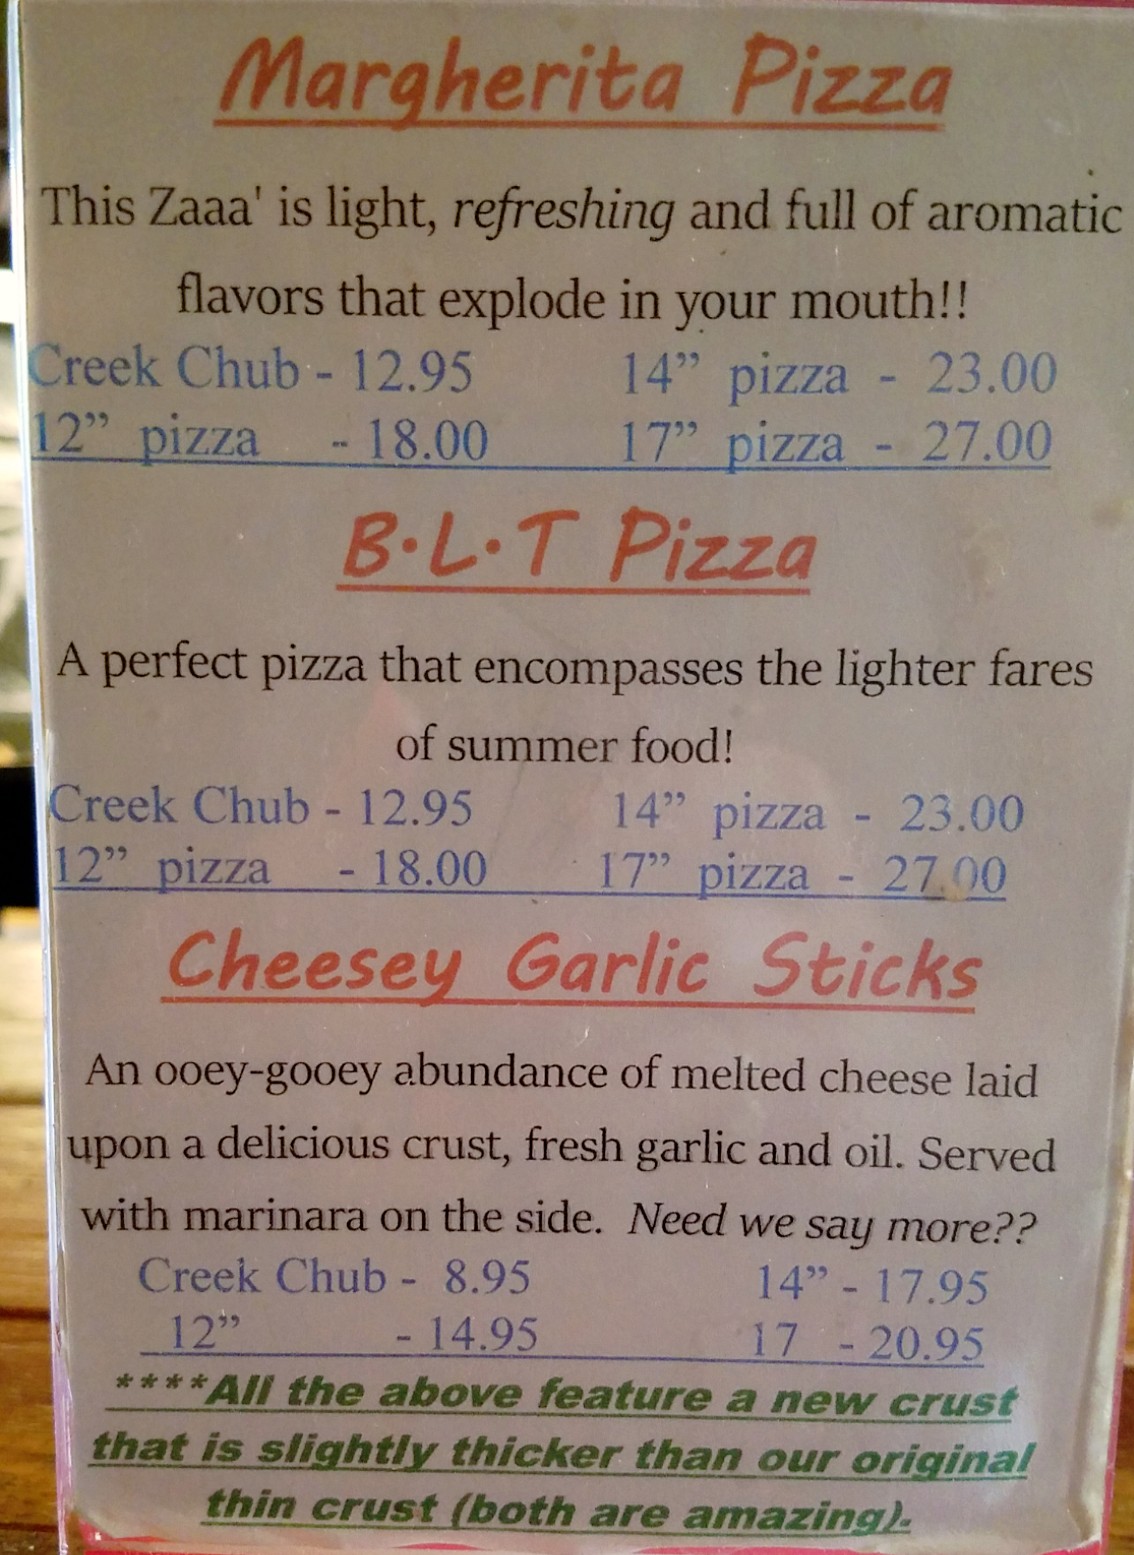 Margherita Pizza
This Zaaa' is light, refreshing and full of aromatic
flavors that explode in your mouth!!
Creek Chub - 12.95 14” pizza - 23.00
12” pizza - 18.00 17” pizza - 27.00
B•L•T Pizza
A perfect pizza that encompasses the lighter fares
of summer food!
Creek Chub - 12.95 14” pizza - 23.00
12” pizza - 18.00 17” pizza - 27.00
Cheesey Garlic Sticks
An ooey-gooey abundance of melted cheese laid
upon a delicious crust, fresh garlic and oil. Served
with marinara on the side. Need we say more??
Creek Chub - 8.95 14” - 17.95
12” - 14.95 17 - 20.95
****All the above feature a new crust
that is slightly thicker than our original
thin crust (both are amazing).